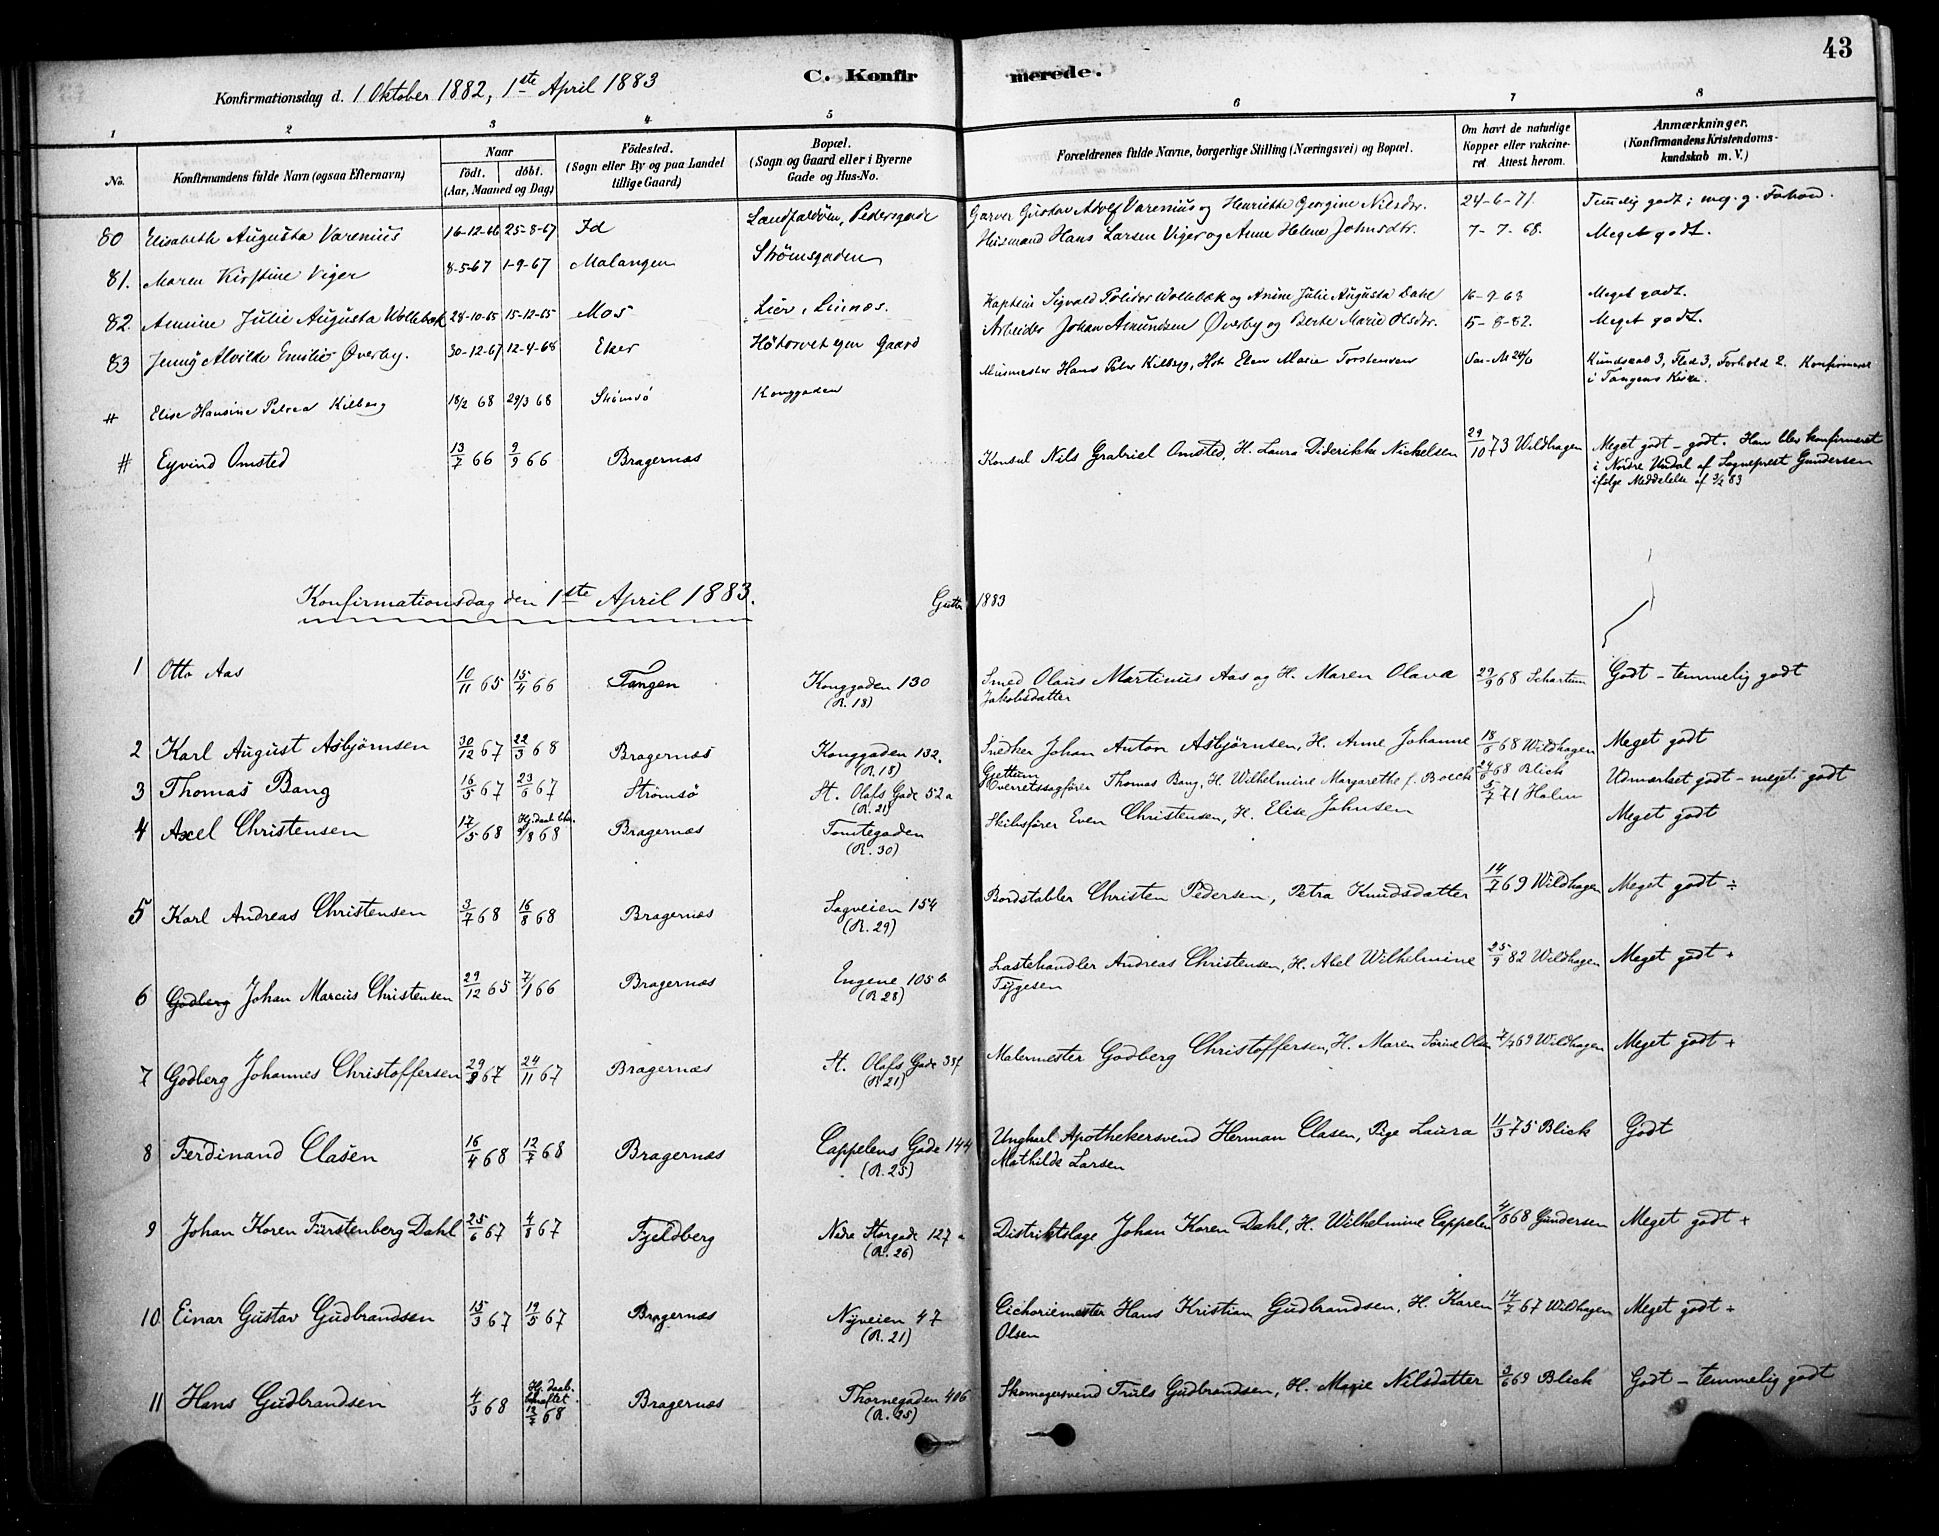 43
C. Konfirmerede.
Konfirmationsdag d. 1 Oktober 1882, 1ste April 1883
1 2 3 4 5 6 7 8
No. Konfirmandens fulde Navn (ogsaa Efternavn) Naar födt. döbt. (Aar, Maaned og Dag) Födested. (Sogn eller By og paa Landet tillige Gaard) Bopæl. (Sogn og Gaard eller i Byerne Gade og Hus-No. Forældrenes fulde Navne, borgerlige Stilling (Næringsvei) og Bopæl. Om havt de naturlige Kopper eller vakcineret Attest herom. Anmærkninger. (Konfirmandens Kristendomskundskab m. V.)
80 Elisabeth Augusta Varenius 16-12-66 25-8-67 Id Landfaldöen, Pedersgade Garver Gustav Adolf Varenius og Henriette Georgine Nilsdtr. 24-6-71 Temelig godt; meg. g. Forhold.
81. Maren Kirstine Viger 8-5-67 1-9-67 Malangen Strömsgaden Husmand Hans Larsen Viger og Anne Helene Johnsdtr. 7-7-68. Meget godt.
82. Annine Julie Augusta Wollebæk 28-10-65 15-12-65 Mos Lier, Linnes. Kaptein Sigvald Wollebæk og Anine Julie Augusta Dahl 16-9-68 Meget godt.
83 Jenny Alvilde Emilie Øverby. 30-12-67 12-4-68 Eker Høtorvet egen Gaard Arbeider Johan Amundsen Øverby og Berte Marie Olsdtr. 5-8-82. Meget godt.
# Elise Hansine Petrea Kilberg 18/2 68 29/3 68 Strömsö Konggaden Murmester Hans Peter Kilberg, Hst Elen Marie Torstensen Kundskab 3, Flid 3, Forhold 2. Konfirmeret
i Tangens Kirke.
# Eyvind Omsted 13/7 66 9/9 66 Bragernæs Konsul Nils Gabriel Omsted, H. Laura Diderikke Nickelsen 29/10 73 Wildhagen Meget godt - godt. Han blev konfirmeret
i Nordre Undal af Sogneprest Gundersen
ifølge Meddelelse af 3/4 83
Konfirmationsdag den 1ste April 1883. Gutter 1883
1 Otto Aas 10/11 65 15/4 66 Tangen Konggaden 130 (R. 18) Smed Olaus Martinus Aas og H. Maren Olava
Jakobsdatter 29/9 68 Schartum Godt - temmelig godt
2 Karl August Asbjörnsen 30/12 67 22/3 68 Bragernæs Konggaden 132. (R. 18) Snedker Johan Anton Asbjørnsen, H. Anne Johanne
Gjettum 18/6 68 Wildhagen Meget godt
3 Thomas Bang 16/5 67 23/6 67 Strömsö St. Olafs Gade 52 a (R. 21) Overretssagfører Thomas Bang, H. Wilhelmine Margarethe f. Boeck 24/6 68 Blick Udmærket godt - meget godt
4 Axel Christensen 17/5 68 Hj. daab bkr. 9/8 68 Bragernæs Tomtegaden (R. 30) Skibsfører Even Christensen, H. Elise Johnsen 5/7 71 Holm Meget godt
5 Karl Andreas Christensen 3/7 68 16/8 68 Bragernæs Sagveien 154 (R. 29) Bordstabler Christen Pedersen, Petra Knudsdatter 14/7 69 Wildhagen Meget godt ÷
6 Godberg Johan Marcus Christensen 29/12 65 7/1 66 Bragernæs Engene 105 b (R. 28) Lastehandler Andreas Christensen, H. Abel Wilhelmine
Tygesen 25/9 82 Wildhagen Meget godt +
7 Godberg Johannes Christoffersen 29/9 67 24/11 67 Bragernæs St. Olafs Gade 35f (R 21) Malermester Godberg Christoffersen, H. Maren Sörine Olsen 7/7 69 Wildhagen Meget godt +
8 Ferdinand Clasen 16/4 68 12/7 68 Bragernæs Cappelens Gade 144 (R. 25) Ungkarl Apothekersvend Herman Clasen, Pige Laura
Mathilde Larsen 11/3 75 Blick Godt
9 Johan Koren Fürstenberg Dahl 25/6 67 4/8 67 Fjeldberg Nedre Storgade 127 a (R. 26) Distriktslæge Johan Koren Dahl, H. Wilhelmine Cappelen 4/8 68 Gundersen Meget godt +
10 Einar Gustav Gudbrandsen 15/3 67 19/5 67 Bragernæs Nyveien 47 (R. 21) Cichoriemester Hans Kristian Gudbrandsen, H. Karen
Olsen 14/7 67 Wildhagen Meget godt +
11 Hans Gudbrandsen 4/3 68 Hj. daab. bekræftet 12/7 68 Bragernæs Thornegaden 406 (R. 25) Skomagersvend Truls Gudbrandsen, H. Marie Nilsdatter 3/6 69 Blick Godt - temmelig godt